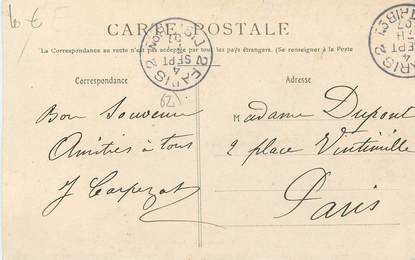 6 €
CARTE POSTALE
La Correspondance au recto n'est pas acceptée par tous les pays étrangers. (Se renseigner à la Poste
Correspondance
Adresse
PARIS 2
4
SEPT
07
PARIS 2
4
SEPT
07
62
Bon Souvenir
Amitiés à tous
J Carpezat
Madame Dupont
2 place Vintimille
Paris